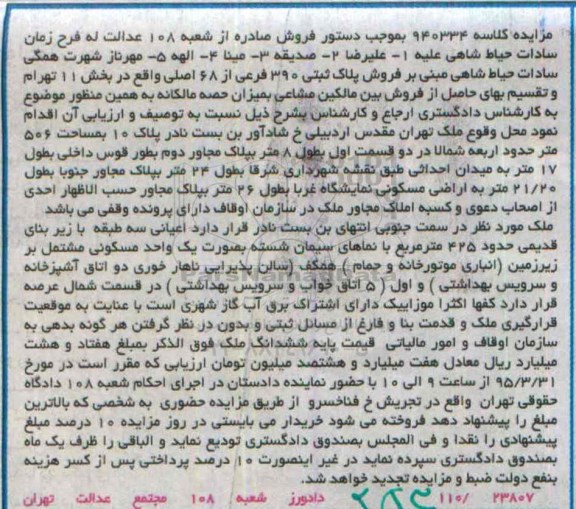 مزایده کلاسه ۹۴۰۳۳۴ بموجب دستور فروش صادره از شعبه ۱۰۸ عدالت له فرح زمان
سادات حیاط شاهی علیه ۱- علیرضا ۲- صدیقه ۳- مینا ۴- الهه ۵- مهرناز شهرت همگی
سادات حیاط شاهی مبنی بر فروش پلاک ثبتی ۳۹۰ فرعی از ۶۸ اصلی واقع در بخش ۱۱ تهرام
و تقسیم بهای حاصل از فروش بین مالکین مشاعی بمیزان حصه مالکانه به همین منظور موضوع
به کارشناس دادگستری ارجاع و کارشناس بشرح ذیل نسبت به توصیف و ارزیابی آن اقدام
نمود محل وقوع ملک تهران مقدس اردبیلی خ شادآور بن بست نادر پلاک ۱۰ بمساحت ۵۰۶
متر حدود اربعه شمالا در دو قسمت اول بطول ۸ متر بپلاک مجاور دوم بطور قوس داخلی بطول
۱۷ متر به میدان احداثی طبق نقشه شهرداری شرقا بطول ۲۴ متر بپلاک مجاور جنوبا بطول
۲۱/۲۰ متر به اراضی مسکونی نمایشگاه غربا بطول ۲۶ متر بپلاک مجاور حسب الاظهار احدی
از اصحاب دعوی و کسبه املاک مجاور ملک در سازمان اوقاف دارای پرونده وقفی می باشد
ملک مورد نظر در سمت جنوبی انتهای بن بست نادر قرار دارد اعیانی سه طبقه با زیر بنای
قدیمی حدود ۴۲۵ مترمربع با نماهای سیمان شسته بصورت یک واحد مسکونی مشتمل بر
زیرزمین (انباری موتورخانه و حمام) همکف (سالن پذیرایی ناهار خوری دو اتاق آشپزخانه
و سرویس بهداشتی) و اول (۵ اتاق خواب و سرویس بهداشتی) در قسمت شمال عرصه
قرار دارد کفها اکثرا موزاییک دارای اشتراک برق آب گاز شهری است با عنایت به موقعیت
قرارگیری ملک و قدمت بنا و فارغ از مسائل ثبتی و بدون در نظر گرفتن هر گونه بدهی به
سازمان اوقاف و امور مالیاتی قیمت پایه ششدانگ ملک فوق الذکر بمبلغ هفتاد و هشت
میلیارد ریال معادل هفت میلیارد و هشتصد میلیون تومان ارزیابی که مقرر است در مورخ
۹۵/۳/۳۱ از ساعت ۹ الی ۱۰ با حضور نماینده دادستان در اجرای احکام شعبه ۱۰۸ دادگاه
حقوقی تهران واقع در تجریش خ فناخسرو از طریق مزایده حضوری به شخصی که بالاترین
مبلغ را پیشنهاد دهد فروخته می شود خریدار می بایستی در روز مزایده ۱۰ درصد مبلغ
پیشنهادی را نقدا و فی المجلس بصندوق دادگستری تودیع نماید و الباقی را ظرف یک ماه
بصندوق دادگستری سپرده نماید در غیر اینصورت ۱۰ درصد پرداختی پس از کسر هزینه
بنفع دولت ضبط و مزایده تجدید خواهد شد.
۲۳۸۰۷ /۱۱۰ دادورز شعبه ۱۰۸ مجتمع عدالت تهران